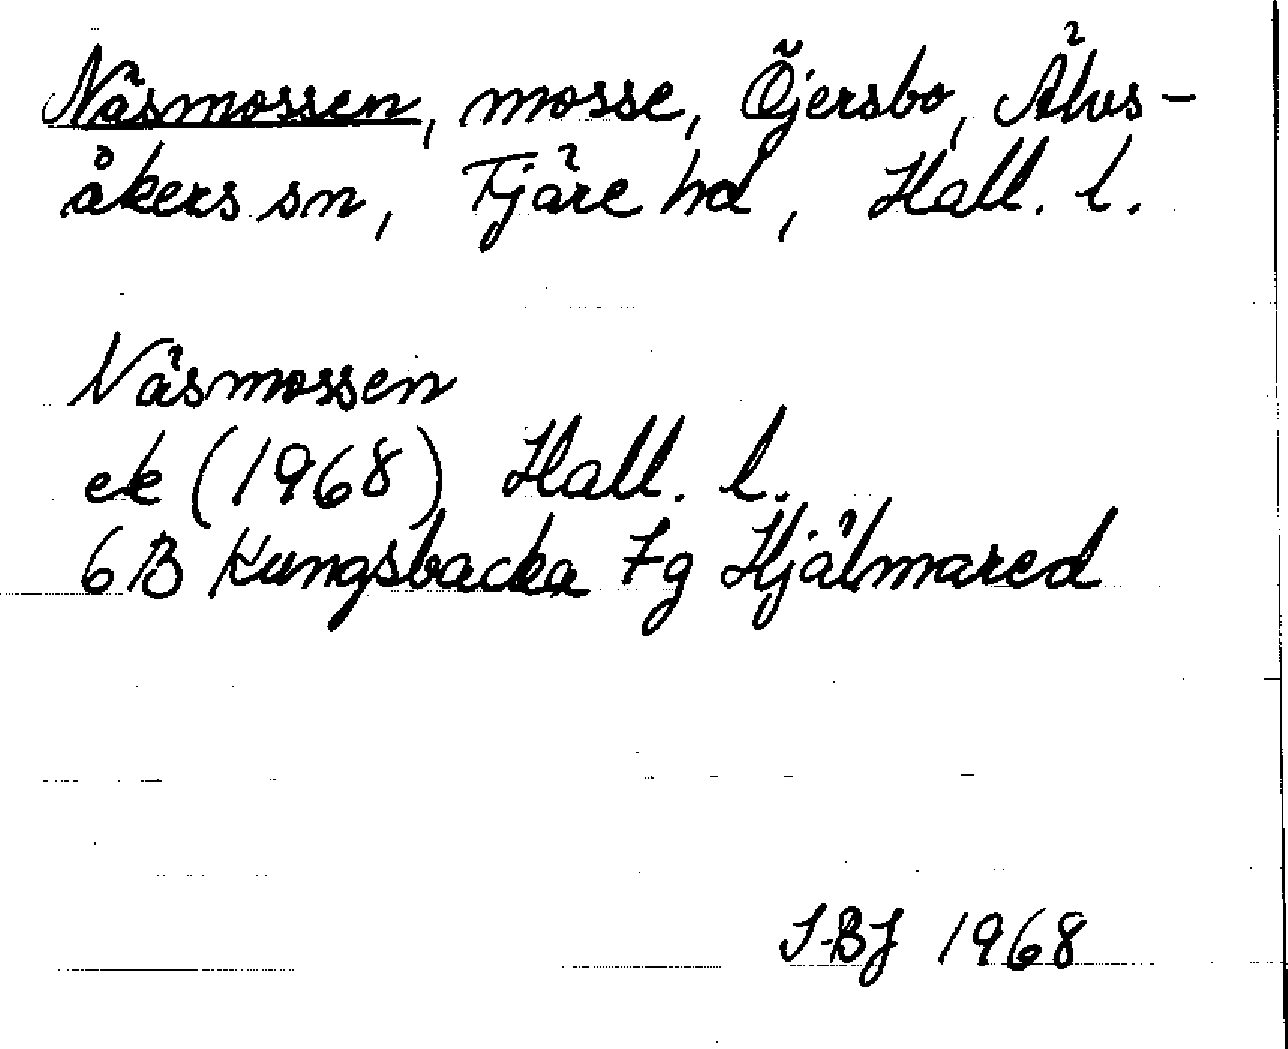 Näsmossen, mosse, Öjersbo, Älvs-
åkers sn, Fjäre hd, Hall. l.
Näsmossen
ek (1968) Hall. l.
6B Kungsbacka 7g Hjälmared
I-BJ 1968